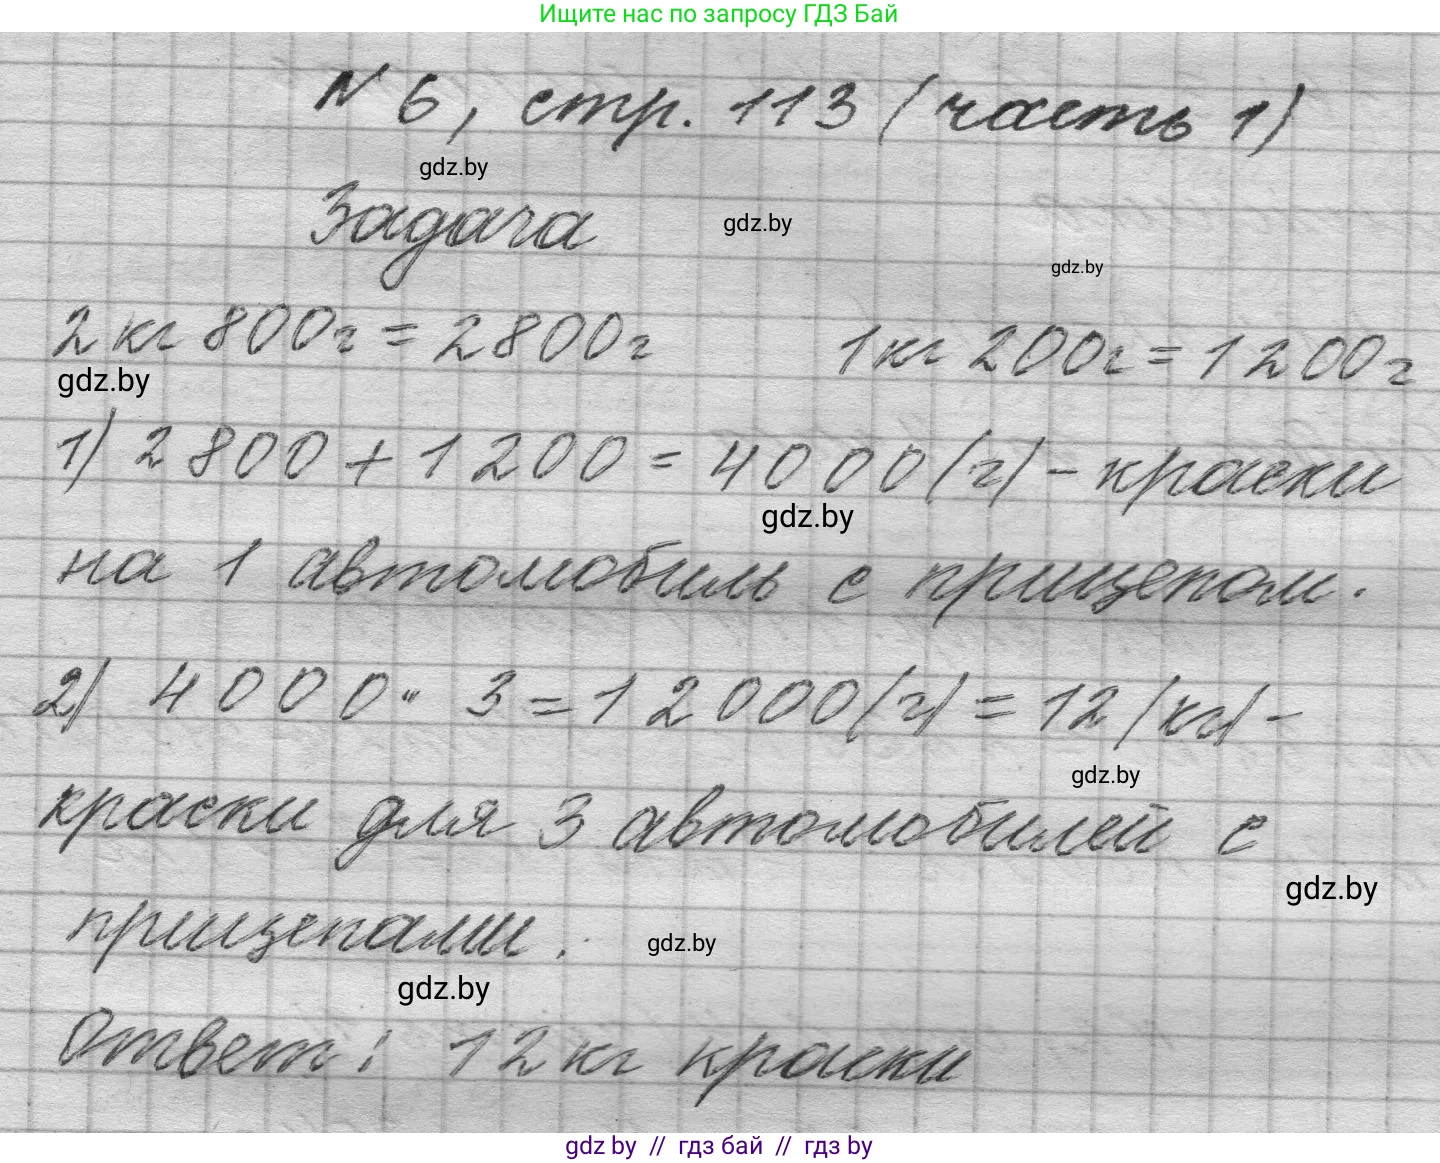 Ищите нас по запросу ГДЗ Бай
№ 6, стр. 113 (часть 1)
gdz.by
Задача
gdz.by
gdz.by
2 кг 800г = 2800г 1 кг 200г = 1200г
gdz.by
1) 2800 + 1200 = 4000 (г) - краски
gdz.by
на 1 автомобиль с прицепом.
2) 4000 · 3 = 12000 (г) = 12 (кг) -
gdz.by
краски для 3 автомобилей с
gdz.by
прицепами.
gdz.by
gdz.by
Ответ: 12 кг краски
gdz.by // гдз бай // гдз by